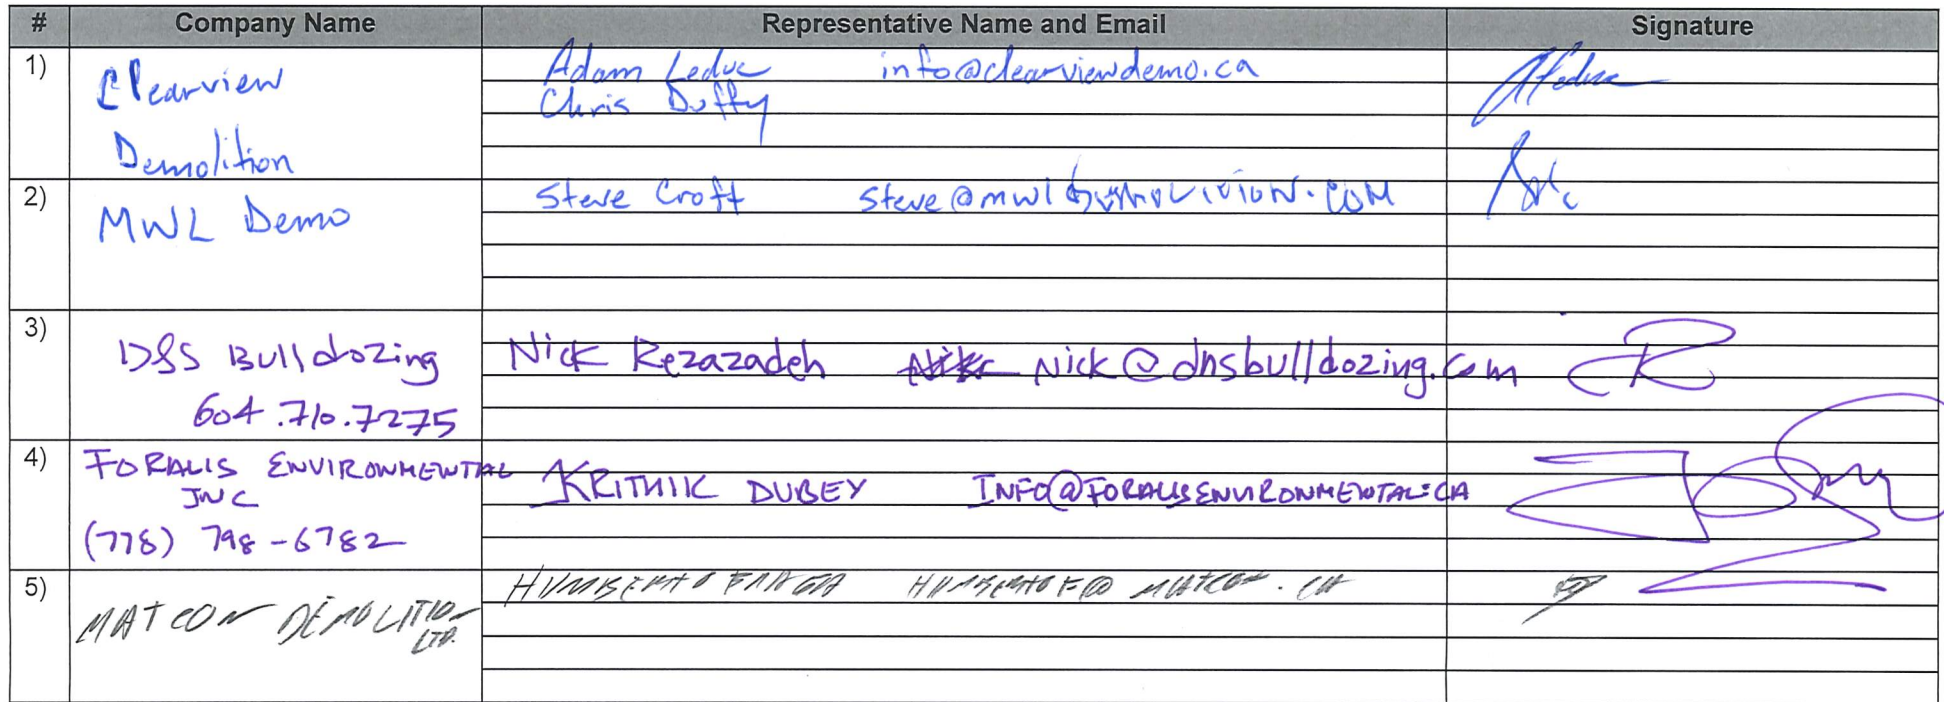 # Company Name Representative Name and Email Signature
1) Clearview Demolition
Adam Leduc info@clearviewdemo.ca
Chris Duffy
2) MWL Demo
Steve Croft steve@mwldemolition.com
3) D&S Bulldozing
604.710.7275
Nick Rezazadeh Nick@dnsbulldozing.com
4) FORALIS ENVIRONMENTAL
INC
(778) 798-6782
KRITHIK DUBEY INFO@FORALISENVIRONMENTAL.CA
5) MATCON DEMOLITION
LTD.
HUMBERTO HUMBERTOF@MATCON.CA